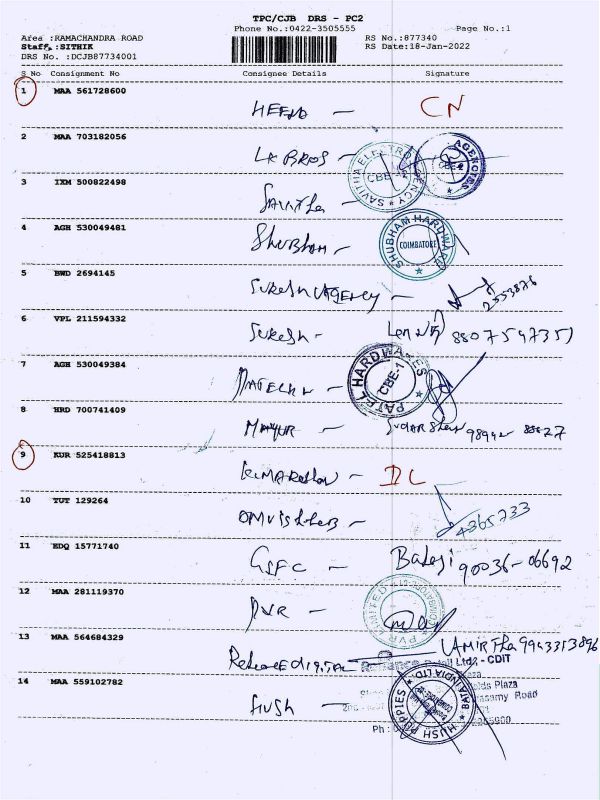 TPC/CJB DRS - PC2
Phone No.:0422-3505555 Page No.:1
Area :RAMACHANDRA ROAD RS No.:877340
Staff :SITHIK RS Date:18-Jan-2022
DRS No. :DCJB87734001
S No Consignment No Consignee Details Signature
1 MAA 561728600
CN
2 MAA 703182056
LK BROS -
SAVITHA ELECTRO AGENCY CBE-1
AGENCIES CBE-1
3 IXM 500822498
Savitha
4 AGH 530049481
Shubham -
SHUBHAM HARDWARE COIMBATORE
5 BWD 2694145
Suresh Agency - 2553876
6 VPL 211594332
Suresh - 8807547351
7 AGH 530049384
PATEL HARDWARES CBE-1
8 HRD 700741409
Mayur - Sudarshan
9 KUR 525418813
Kumaran - DC
10 TUT 129264
4365233
11 EDQ 15771740
GSFC - Balaji 90036-06692
12 MAA 281119370
PVR -
PVR LIMITED
13 MAA 564684329
Reliance Digital - Amirtha 9943353896
Reliance Retail Ltd. - CDIT
14 MAA 559102782
Plaza
Road
Hush -
BATA INDIA LTD HUSH PUPPIES
Ph :